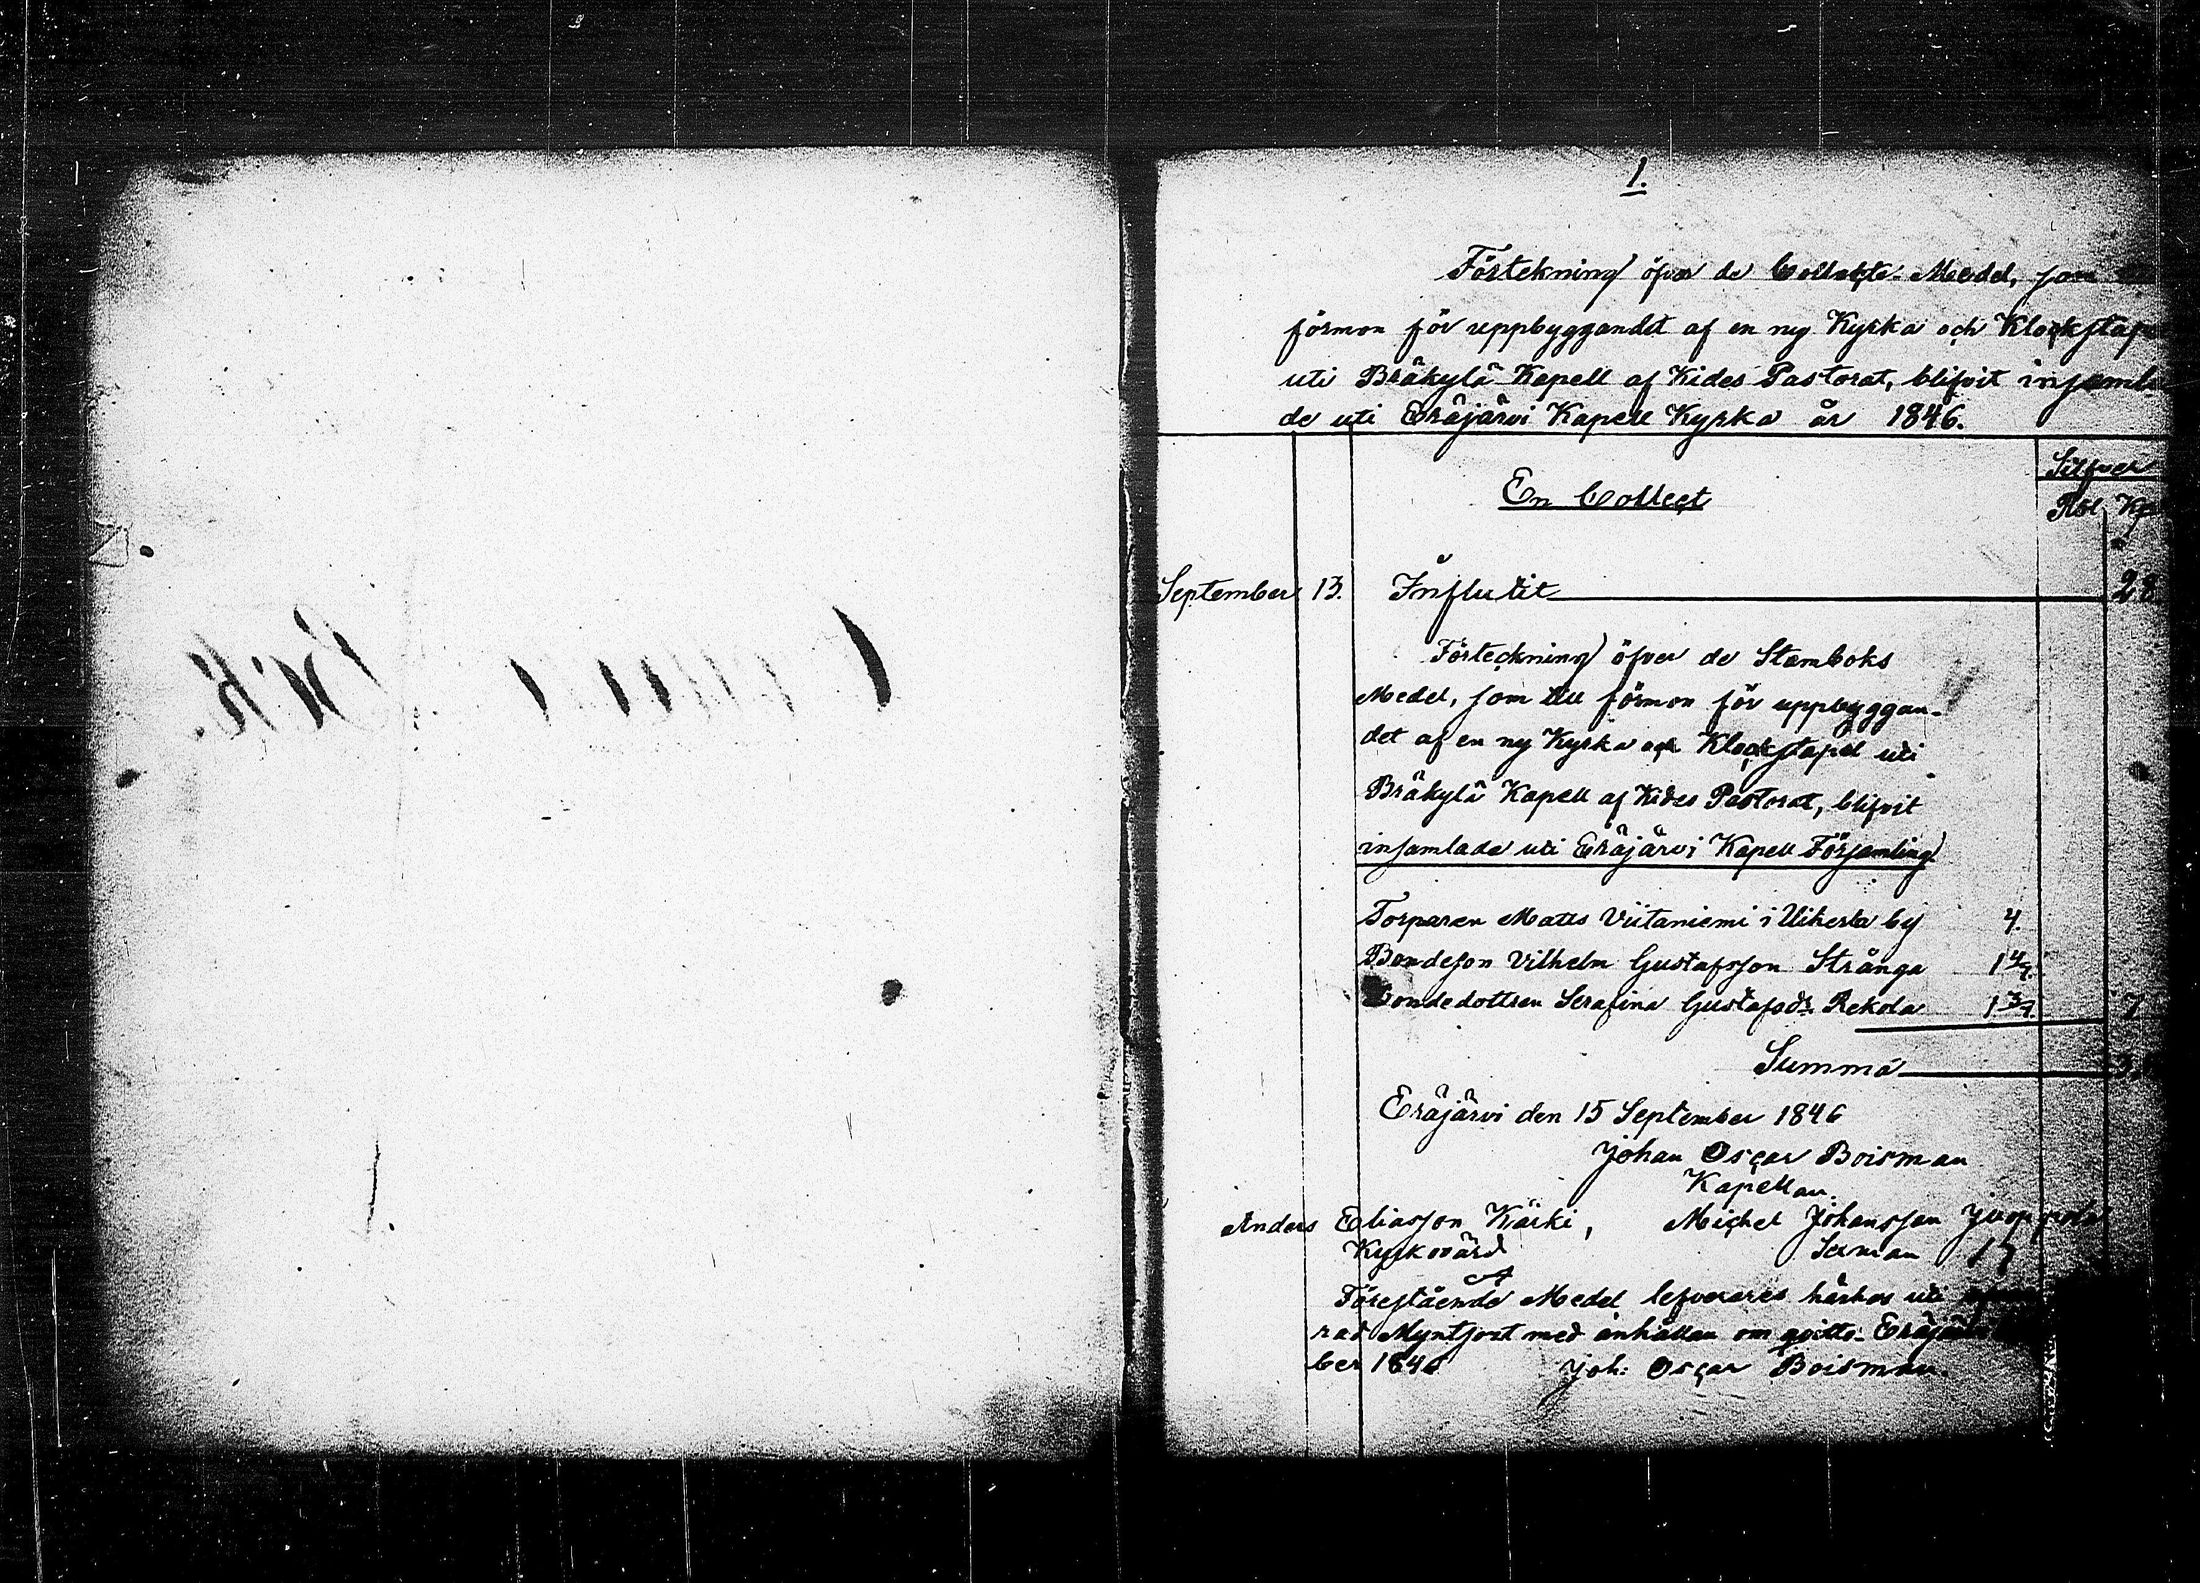 1.
Förtekning öfver de Collecte-Medel, som
förmon för uppbyggandet af en ny Kyrka och Klockstape
uti Bräkylä Kapell af Kides Pastorat, blifvit insamla
de uti Eräjärvi Kapell Kyrka år 1846.
Silfver
En Collect
Rbl Kp
September 13. Influtit 28
Förteckning öfver de Stamboks
Medel, som till förmon för uppbyggan-
det af en ny Kyrka och Klockstapel uti
Bräkylä Kapell af Kides Pastorat, blifvit
insamlade uti Eräjärvi Kapell Församling
Torparen Matts Viitaniemi i Uiherla by 4.
Bondeson Vilhelm Gustafsson Strånga 1 4/7.
Bondedottren Serafina Gustafsdr. Rekola 1 3/7. 7
Summa
Eräjärvi den 15 September 1846
Johan Oscar Boisman
Kapellan.
Anders Eliasson Kärki, Michel Johansson
Kyrkovärd
Förestående Medel lefvereres härhos uti
rad Myntsort med anhållan om qvitto. Eräjärvi
ber 1846 Joh: Oscar Boisman.